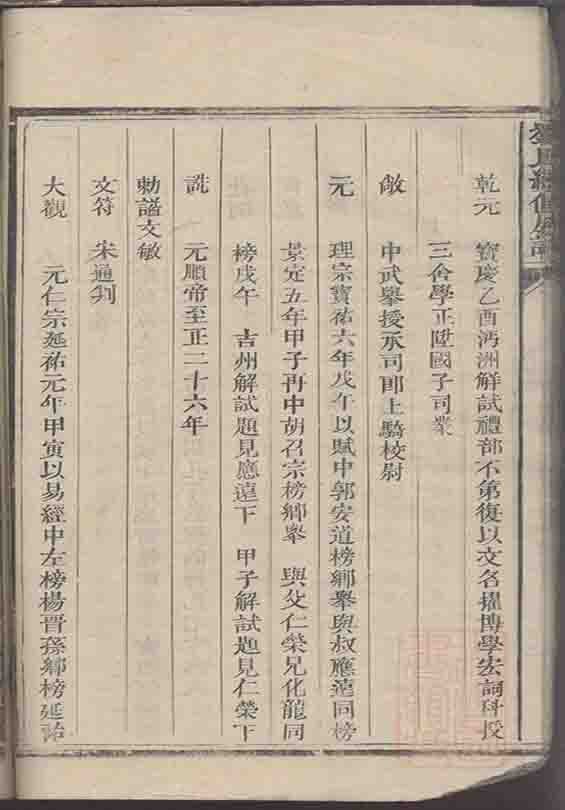 乾元　寶慶乙酉沔洲解試禮部不第復以文名擢博學宏詞科授
三舍學正陞國子司業
敵　中武舉授承司郎上騎校尉
元　理宗寶祐六年戊午以賦中郭安道榜鄉舉與叔應遠同榜
景定五年甲子再中胡召宗榜鄉舉　與父仁榮兄化龍同
榜戊午　吉州解試題見應遠下　甲子解試題見仁榮下
詵　元順帝至正二十六年
勅諡文敏
文符　宋通判
大觀　元仁宗延祐元年甲寅以易經中左榜楊晋孫鄉榜延祐